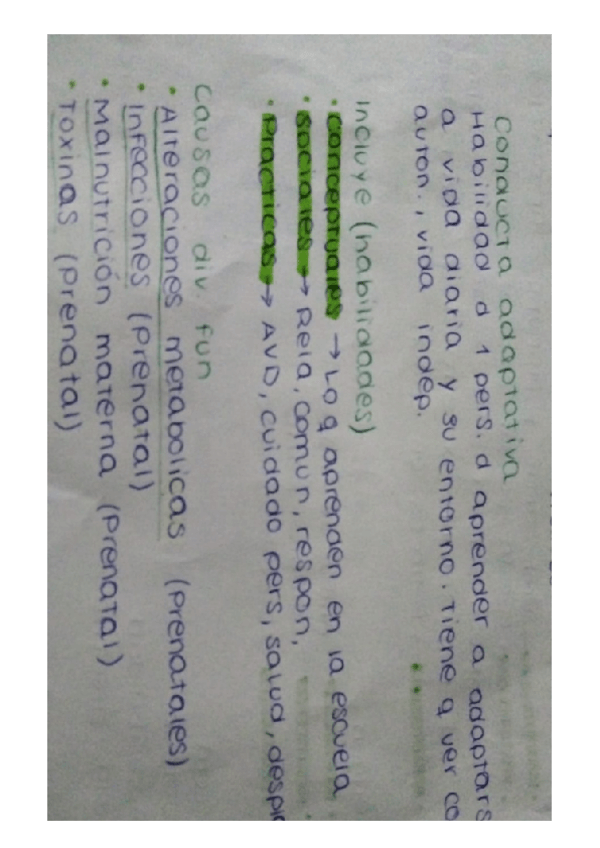 Conducta adaptativa
Habilidad d 1 pers. d aprender a adaptars
a vida diaria y su entorno. Tiene q ver co
auton., vida indep.
Incluye (habilidades)
• Conceptuales → Lo q aprenden en la escuela
• Sociales → Rela, comun, respon,
• Prácticas → AVD, cuidado pers, salud, despla
Causas div. fun
• Alteraciones metabólicas (Prenatales)
• Infecciones (Prenatal)
• Malnutrición materna (Prenatal)
• Toxinas (Prenatal)